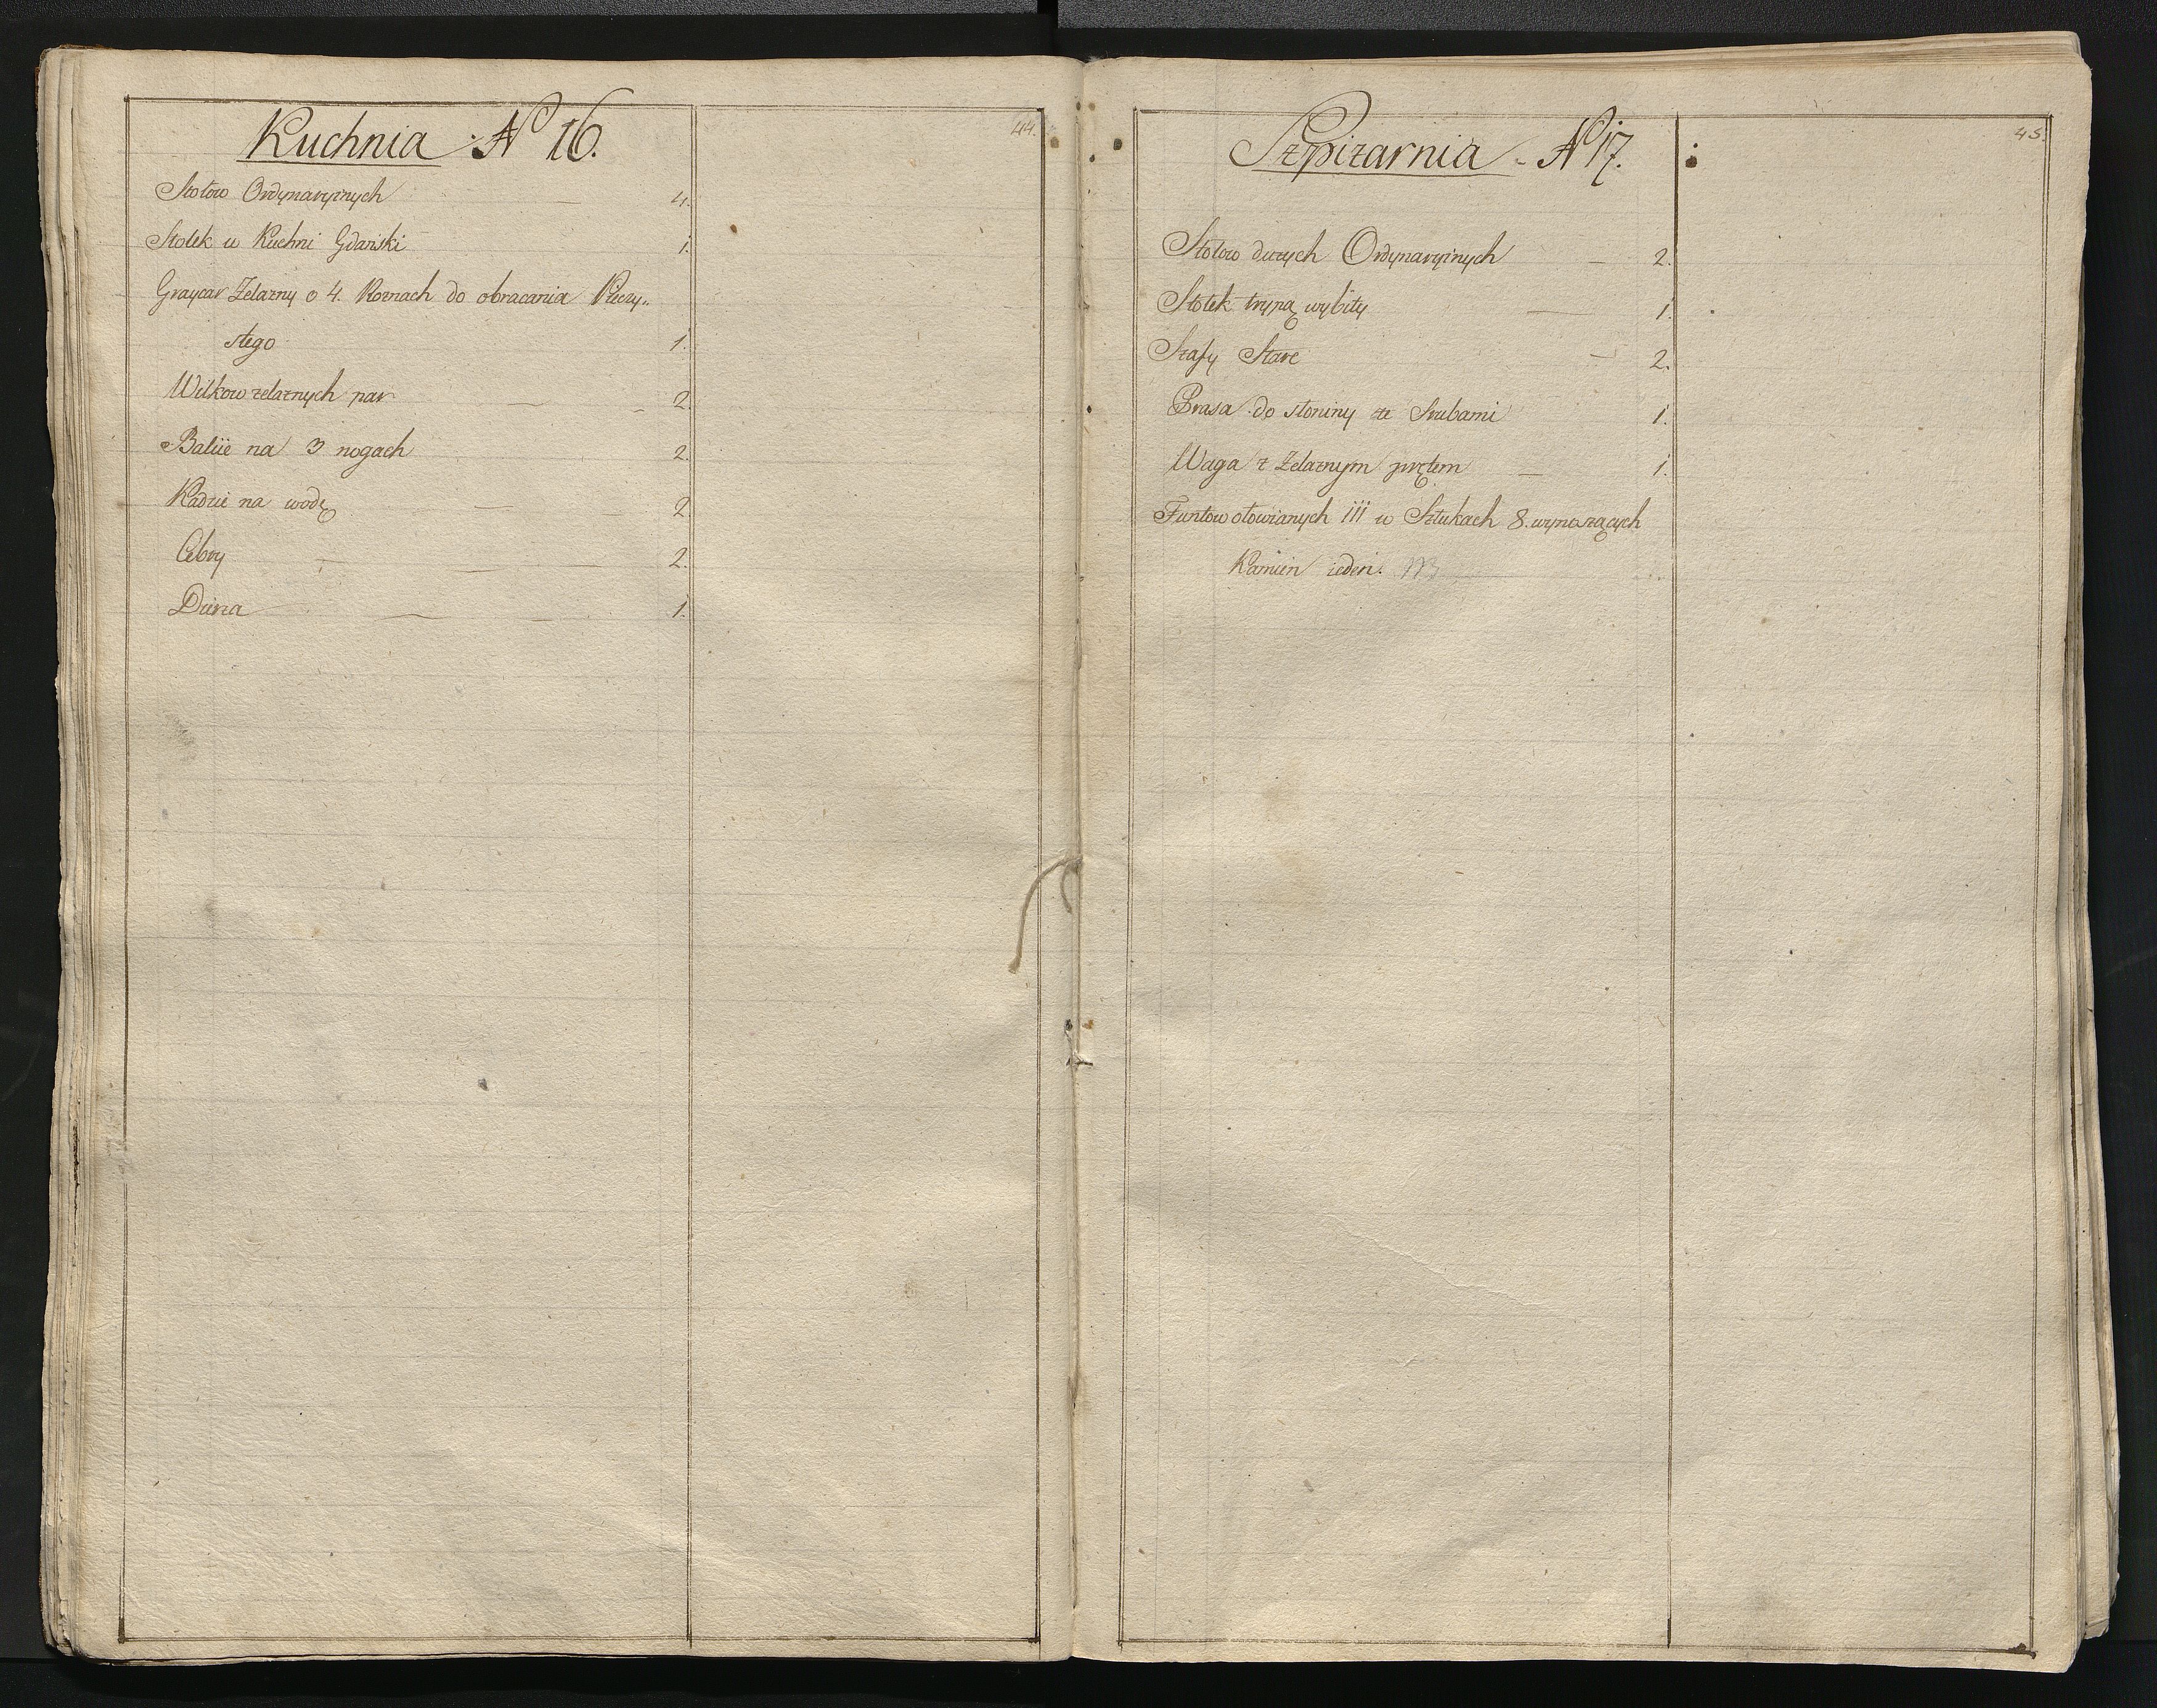 44.
Kuchnia N° 16.
Stołow Ordynaryinych 4.
Stołek w Kuchni Gdański 1.
Graycar Żelazny o 4. Roznach do obracania Pieczy„
stego 1.
Wilkow żelaznych par 2.
Baliie na 3 nogach 2.
Kadzie na wodę 2
Cebry 2.
1.
45.
Szpiżarnia - N° 17.
Stołow dużych Ordynaryinych 2.
Stołek trypą wybity 1.
Szafy Stare 2.
Prasa do słoniny ze Srubami 1.
Waga z Żelaznym prętem 1.
Funtow ołowianych III w Sztukach 8. wynoszących
Kamień ieden.